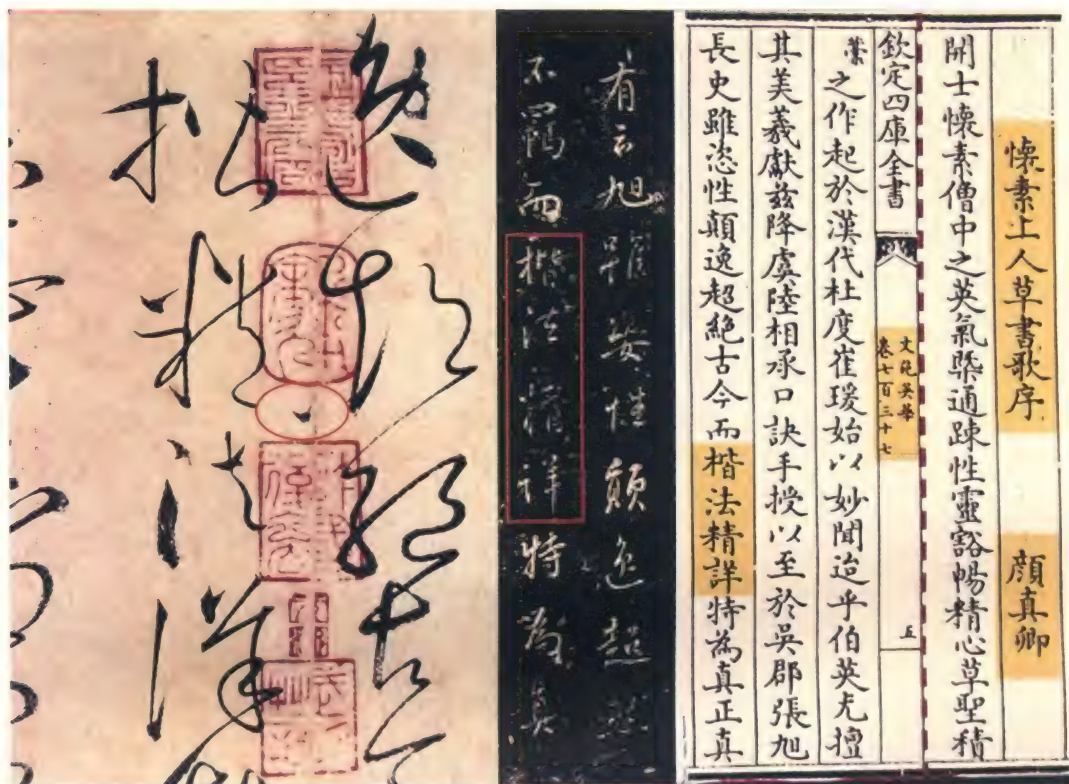 懷素上人草書歌序 顔真卿
開士懷素僧中之英氣槩通疎性靈豁暢精心草聖積
欽定四庫全書 文苑英華 卷七百三十七 五
藁之作起於漢代杜度崔瑗始以妙聞迨乎伯英尤擅
其美羲獻兹降虞陸相承口訣手授以至於吳郡張旭
長史雖恣性顛逸超絶古今而楷法精詳特為真正真
有云旭雖姿性顛逸超然
不羈而楷法精詳特為真
逸超絶古
楷精法詳